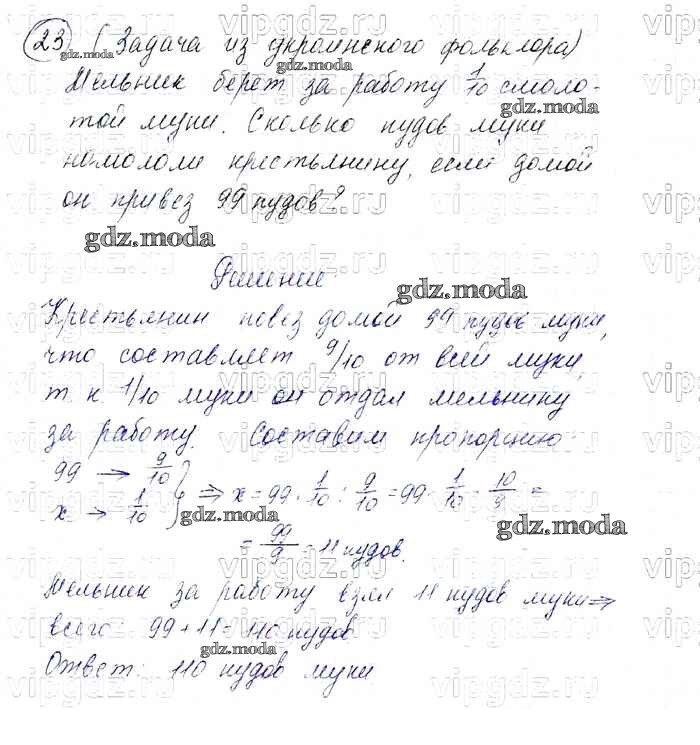 23 (Задача из украинского фольклора)
Мельник берет за работу 1/10 смоло-
той муки. Сколько пудов муки
намололи крестьянину, если домой
он привез 99 пудов?
Решение
Крестьянин повез домой 99 пудов муки,
что составляет 9/10 от всей муки,
т к 1/10 муки он отдал мельнику
за работу. Составим пропорцию:
99 → 9/10
x → 1/10 } ⇒ x = 99 · 1/10 : 9/10 = 99 · 1/10 · 10/9 =
= 99/9 = 11 пудов.
Мельник за работу взял 11 пудов муки ⇒
всего: 99 + 11 = 110 пудов
Ответ: 110 пудов муки
gdz.moda
vipgdz.ru